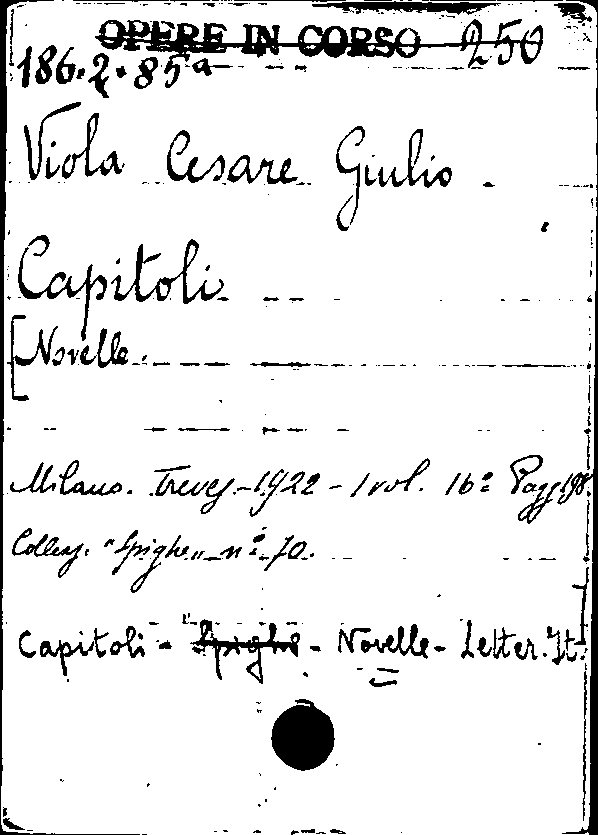 OPERE IN CORSO 250
186.2.85a
Viola Cesare Giulio -
Capitoli
[Novelle.
Milano. Treves - 1922 - 1 vol. 16º Pagg. 198.
Collez. "Spighe" nº 70.
Capitoli - "Spighe - Novelle - Letter. It.